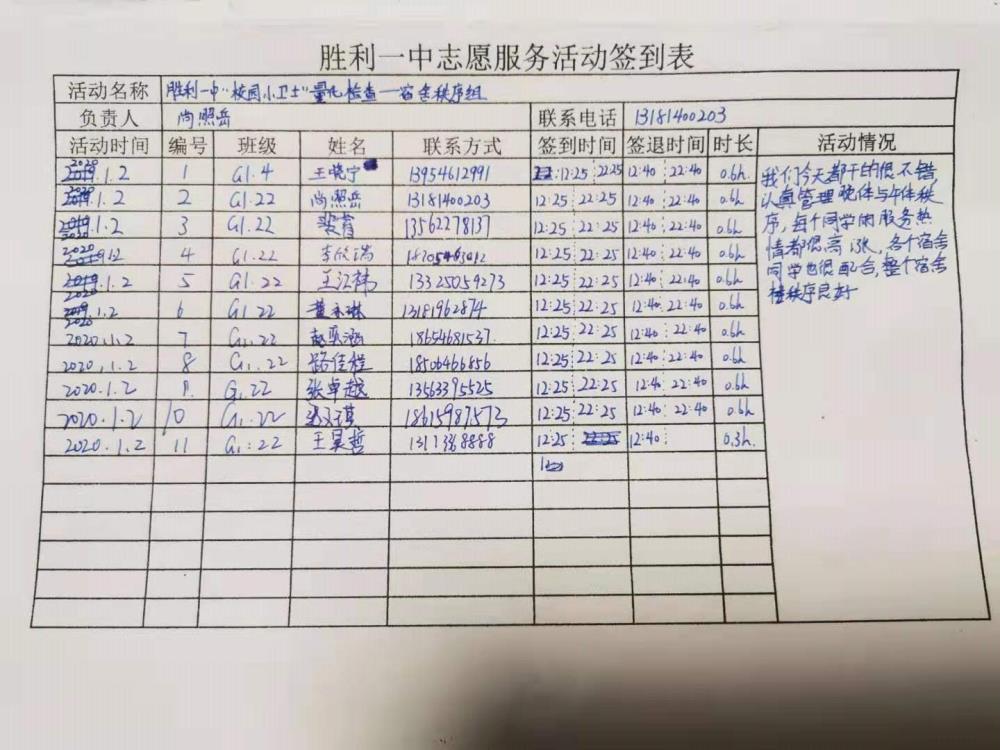 胜利一中志愿服务活动签到表
活动名称 胜利一中“校园小卫士”量化检查—宿舍秩序组
负责人 尚照岳 联系电话 13181400203
活动时间 编号 班级 姓名 联系方式 签到时间 签退时间 时长 活动情况
2020.1.2 1 G1.4 王晓宁 13954612991 12:25 22:25 12:40 22:40 0.6h.
2020.1.2 2 G1.22 尚照岳 13181400203 12:25 22:25 12:40 22:40 0.6h
2020.1.2 3 G1.22 13562278137 12:25 22:25 12:40 22:40 0.6h
2020.1.2 4 G1.22 12:25 22:25 12:40 22:40 0.6h
2020.1.2 5 G1.22 王江祎 13325059273 12:25 22:25 12:40 22:40 0.6h
2020.1.2 6 G1.22 13181962874 12:25 22:25 12:40 22:40 0.6h
2020.1.2 7 G1.22 18654681537 12:25 22:25 12:40 22:40 0.6h
2020.1.2 8 G1.22 路佳程 18506466856 12:25 22:25 12:40 22:40 0.6h
2020.1.2 G1.22 张卓越 13563395525 12:25 22:25 12:40 22:40 0.6h
2020.1.2 10 G1.22 18615987573 12:25 22:25 12:40 22:40 0.6h
2020.1.2 11 G1:22 王昊哲 12:25 12:40 0.3h.
我们今天都干的很不错,
认真管理晚休与午休秩
序,每个同学的服务热
情都很高涨,各个宿舍
同学也很配合,整个宿舍
楼秩序良好